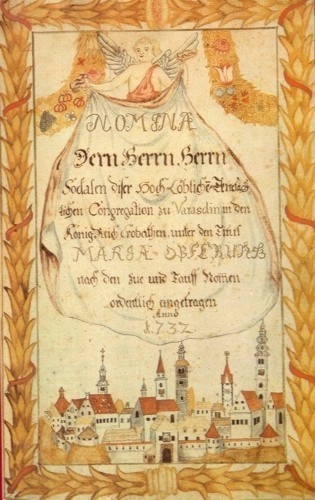 NOMINA
Dern Herrn Herrn
Sodalen diser Hoch-Löbliche
lichen Congregation zu Varasdin in den
König Reich Crobathen, unter den Titul
MARIÆ OPFERUNG
nach den Zue und Tauff Nomen
ordentlich eingetragen
Anno
1732